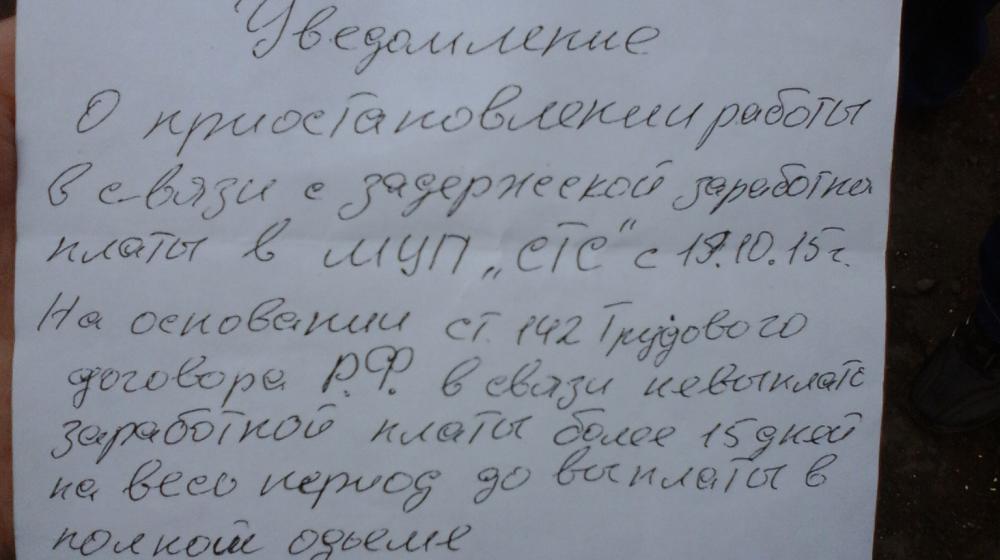 Уведомление
О приостановлении работы
в связи с задержекой заработна
платы в МУП „СТС" с 19.10.15г.
На основании ст. 142 Трудового
договора Р.Ф. в связи невыплате
заработной платы более 15 дней
на весь период до выплаты в
полном одьеме